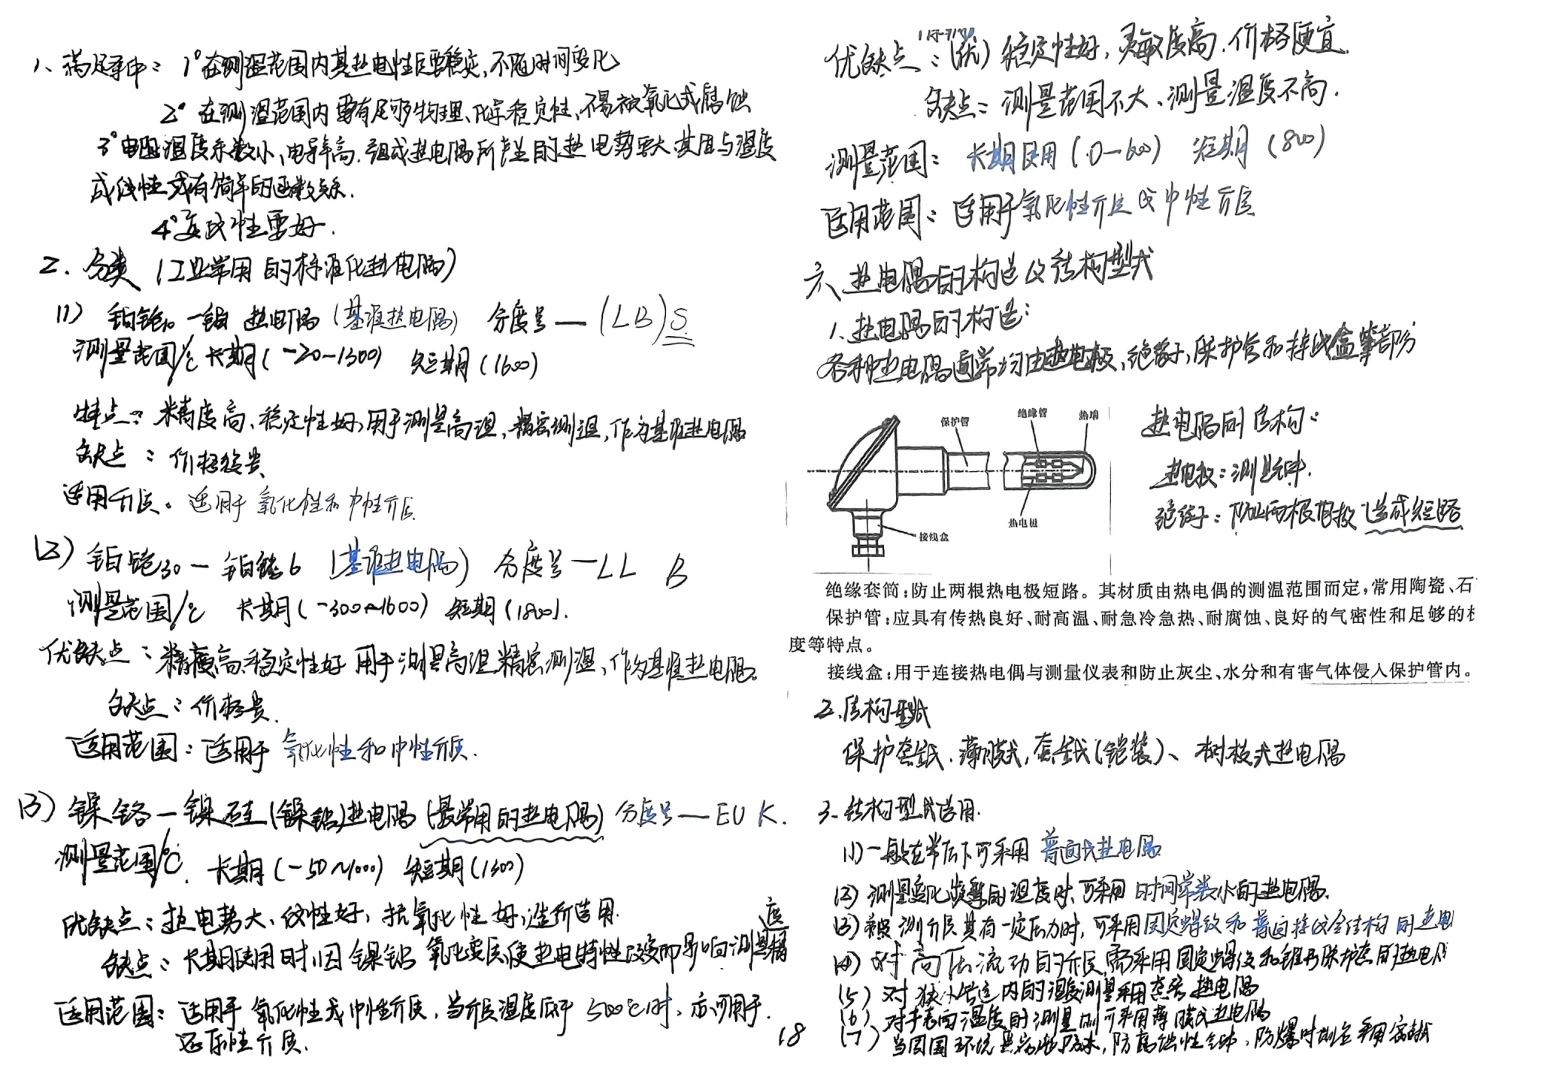 1、满足条件：1°在测温范围内其热电性能要稳定，不随时间变化
2°在测温范围内要有足够物理、化学稳定性，不易被氧化或腐蚀
3°电阻温度系数小、电导率高，组成热电偶所产生的热电势要大，其值与温度
成线性或有简单的函数关系.
4°复现性要好.
2. 分类（工业常用的标准化热电偶）
(1) 铂铑10一铂 热电偶（基准热电偶） 分度号—（LB）S
测量范围/℃ 长期（-20~1300） 短期（1600）
特点：精度高、稳定性好，用于测量高温，精密测温，作为基准热电偶
缺点：价格较贵
适用介质：适用于氧化性和中性介质
(2) 铂铑30—铂铑6（基准热电偶） 分度号—LL B
测量范围/℃ 长期（-300~1600） 短期（1800）.
优缺点：精度高、稳定性好 用于测量高温精密测温，作为基准热电偶.
缺点：价格贵.
适用范围：适用于氧化性和中性介质.
(3) 镍铬—镍硅（镍铝）热电偶（最常用的热电偶） 分度号—EU K.
测量范围/℃. 长期（-50~1000） 短期（1300）
优缺点：热电势大、线性好，抗氧化性好，造价
缺点：长期使用时，因镍铝氧化变质使热电特性改变而影响测量精度
适用范围：适用于氧化性或中性介质，当介质温度低于500℃时，亦可用于
还原性介质.
18
优缺点：（优）稳定性好，灵敏度高.价格便宜.
缺点：测量范围不大、测量温度不高.
测量范围：长期使用（0—600） 短期（800）
适用范围：适用于氧化性介质或中性介质
六、热电偶的构造及结构型式
1.热电偶的构造：
各种热电偶通常均由热电极，绝缘子，保护管和接线盒等部分
保护管
绝缘管
热端
热电极
接线盒
热电偶的结构：
热电极：测量元件.
绝缘子：防止两根电极造成短路
绝缘套筒：防止两根热电极短路。其材质由热电偶的测温范围而定，常用陶瓷、石
保护管：应具有传热良好、耐高温、耐急冷急热、耐腐蚀、良好的气密性和足够的机
度等特点。
接线盒：用于连接热电偶与测量仪表和防止灰尘、水分和有害气体侵入保护管内。
2.结构型式
保护套式、薄膜式，套式（铠装）、树枝式热电偶
3.结构型式选用.
(1)一般在常压下可采用普通式热电偶
(2) 测量变化频繁的温度时，可采用时间常数小的热电偶.
(3)被测介质具有一定压力时，可采用固定螺纹和普通接线盒结构的热电
(4)对高压流动的介质，需采用固定螺纹和锥形保护套的热电偶
(5)对狭小管道内的温度测量采用套式热电偶
(6)对于表面温度的测量则可采用薄膜式热电偶
(7) 当周围环境要求防水，防腐蚀性气体，防爆时则应采用密封